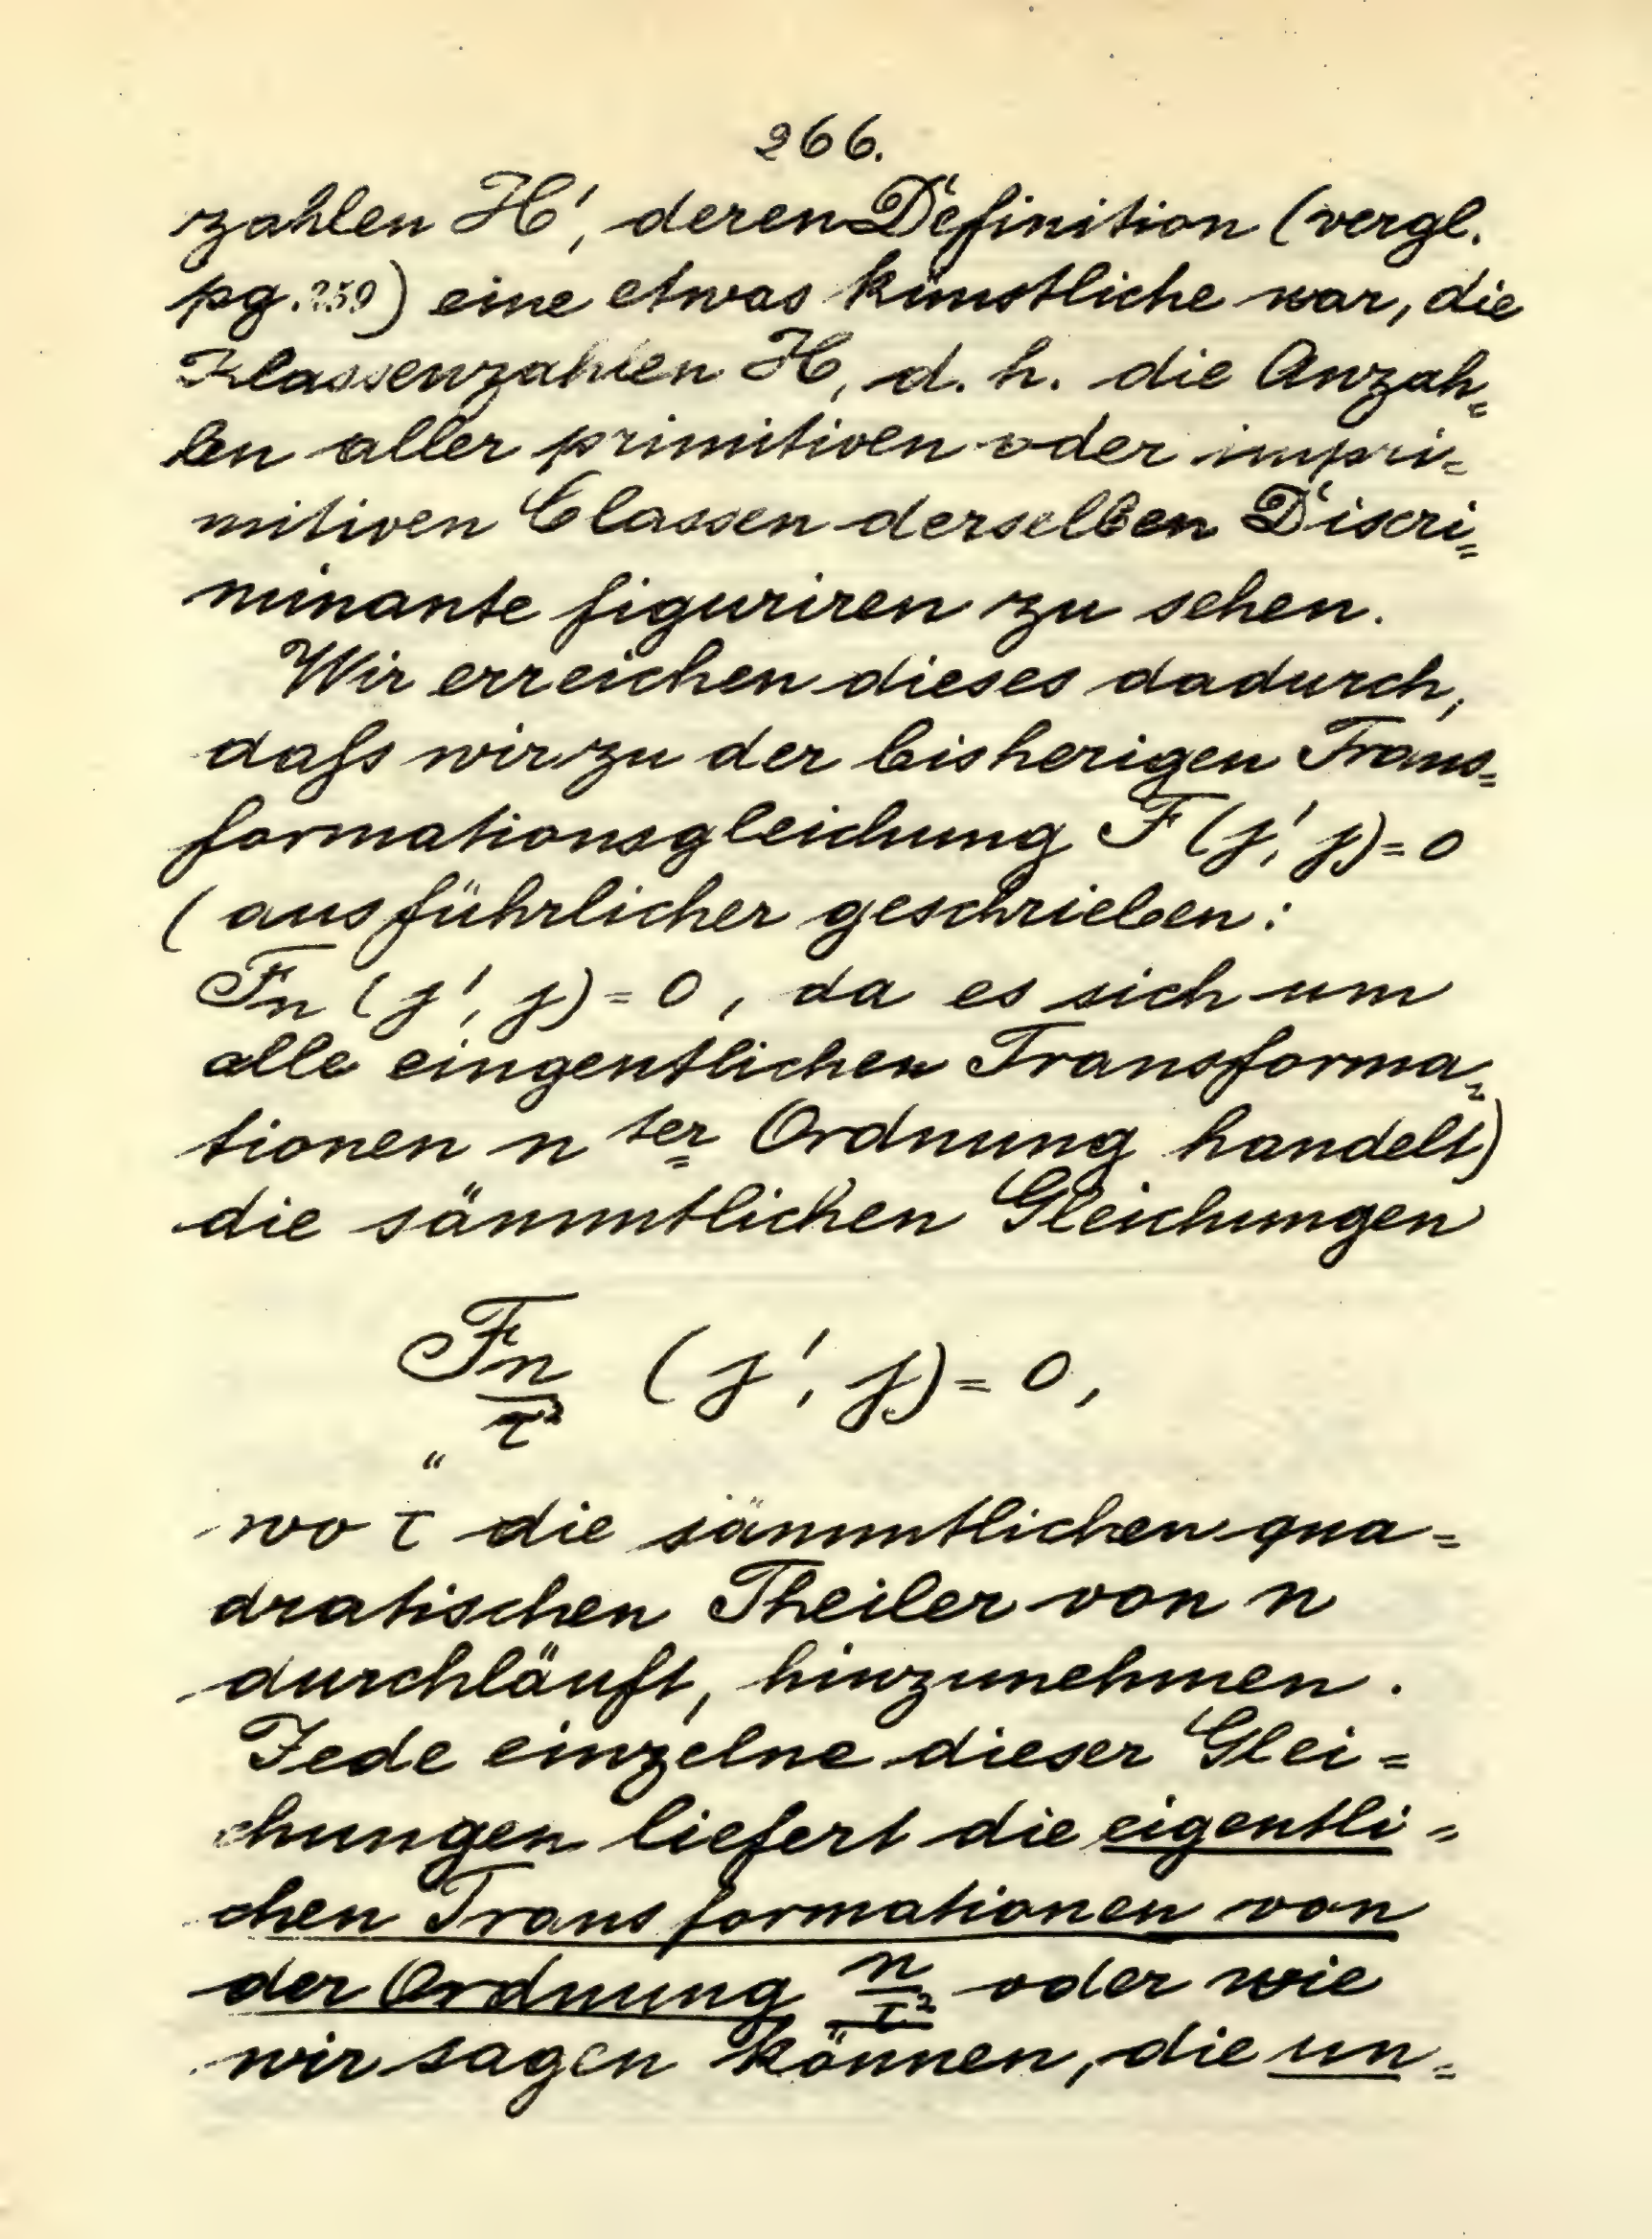 266.
zahlen H', deren Definition (vergl.
pg. 259) eine etwas künstliche war, die
Klassenzahlen H, d. h. die Anzah=
len aller primitiven oder impri=
mitiven Classen derselben Discri=
minante figuriren zu sehen.
Wir erreichen dieses dadurch,
dafs wir zu der bisherigen Trans=
formationsgleichung F (j', j) = 0
(ausführlicher geschrieben:
Fn (j', j) = 0, da es sich um
alle eingentlichen Transforma=
tionen n ter Ordnung handelt)
die sämmtlichen Gleichungen
F n/τ² (j', j) = 0,
wo τ die sämmtlichen qua=
dratischen Theiler von n
durchläuft, hinzunehmen.
Jede einzelne dieser Glei=
chungen liefert die eigentli=
chen Transformationen von
der Ordnung n/τ² oder wie
wir sagen können, die un=